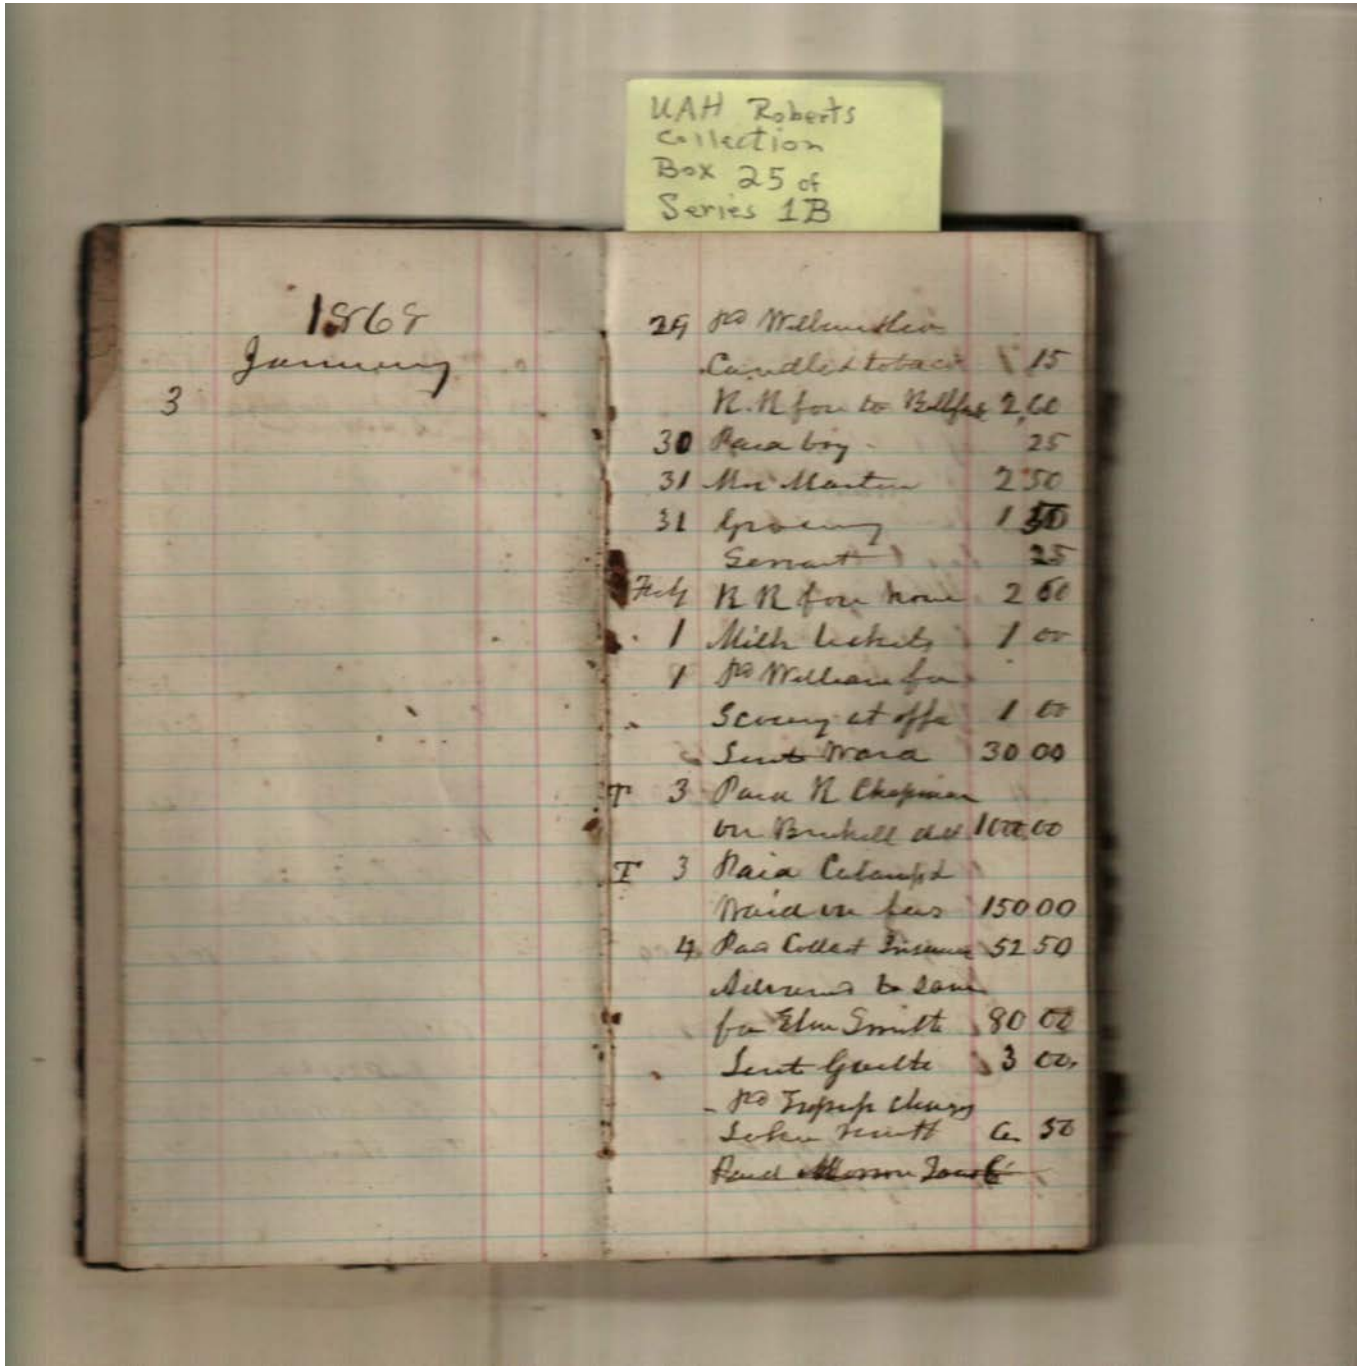 UAH Roberts
Collection
Box 25 of
Series 1B
1868
January
3
29 pd
Candles & tobaco 15
R.R fare to 2,60
30 Paid boy 25
31 Mr Martin 2 50
31 Grocery 1 50
Servant 25
Feby R R fare home 2 60
1 Milk tickets 1 00
1 pd William for
at offi 1 00
Sent Ward 30 00
T 3 Paid R Chapman
on Brickell debt 100,00
T 3 Paid
Ward on fees 150 00
4 Paid Collect Insurance 52 50
Advanced to same
for Smith 80 00
Sent 3 00
pd charges
50
Paid